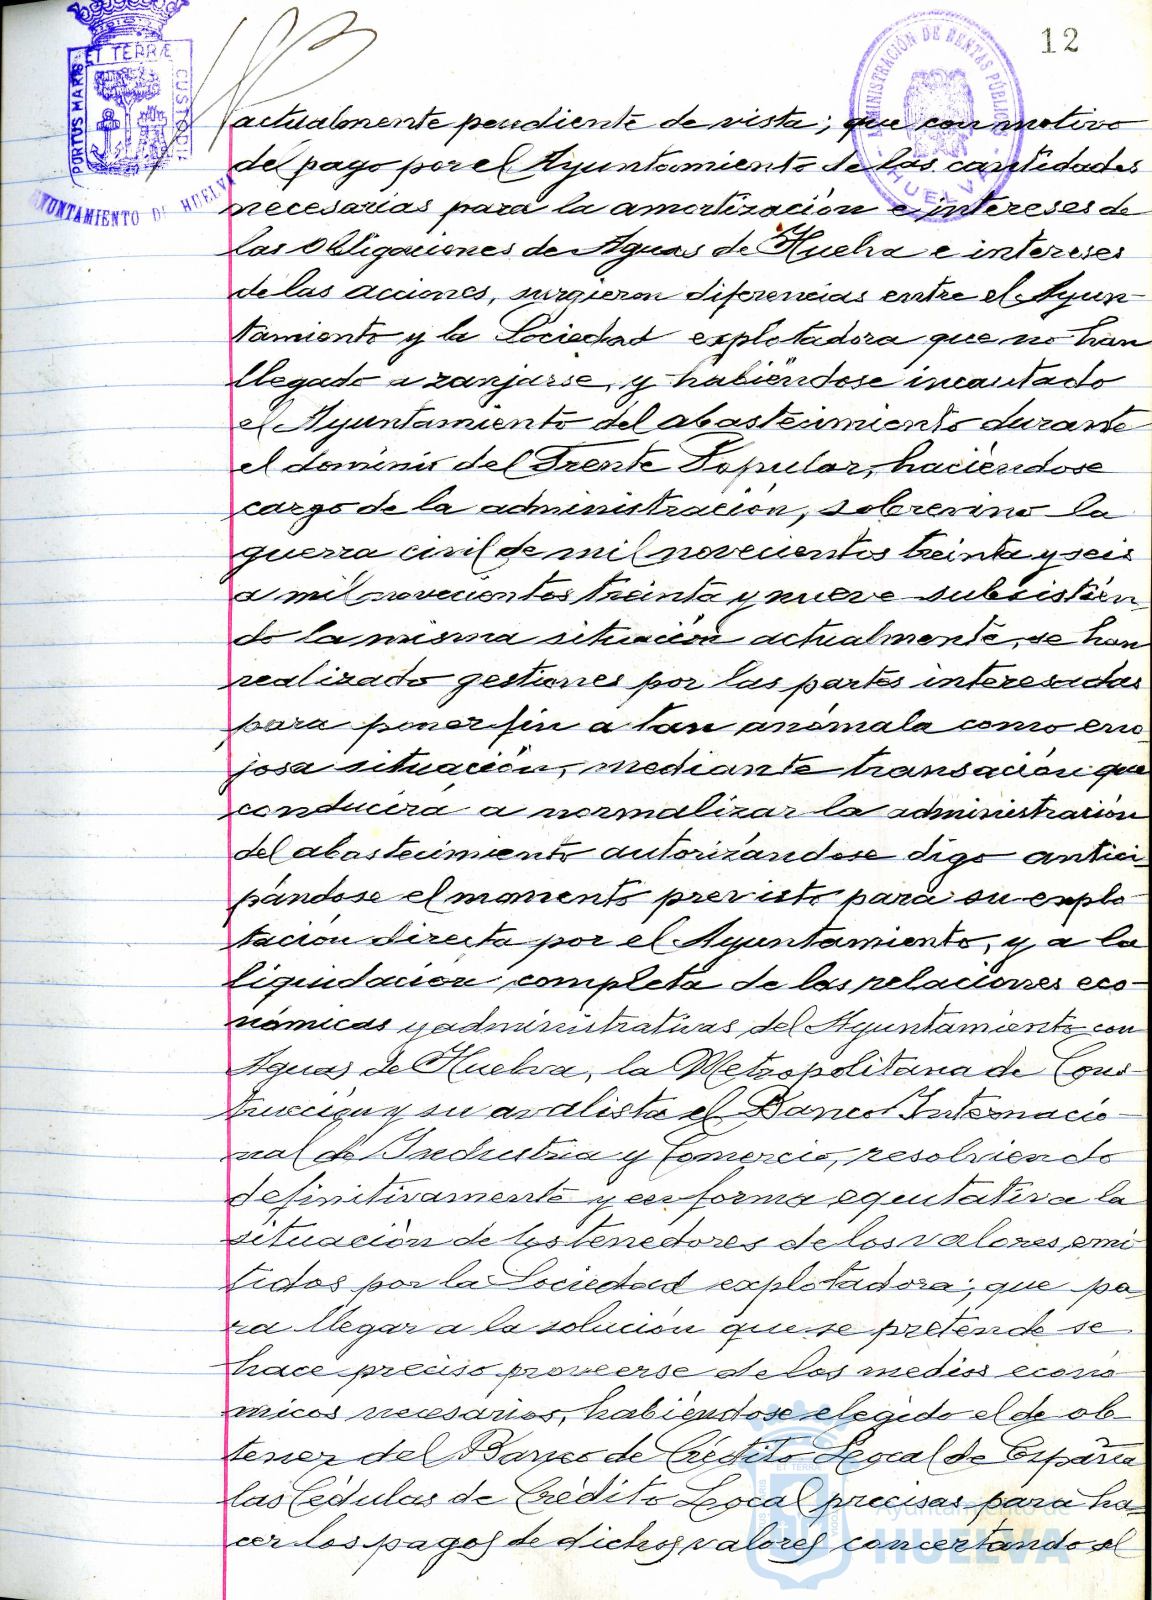 12
ET TERRÆ
PORTUS MARIS
CUSTODIA
AYUNTAMIENTO DE HUELVA
ADMINISTRACIÓN DE RENTAS PÚBLICAS
HUELVA
actualmente pendiente de vista; que con motivo
del pago por el Ayuntamiento de las cantidades
necesarias para la amortización e intereses de
las Obligaciones de Aguas de Huelva e intereses
de las acciones, surgieron diferencias entre el Ayun-
tamiento y la Sociedad explotadora que no han
llegado a zanjarse, y habiéndose incautado
el Ayuntamiento del abastecimiento durante
el dominio del Frente Popular, haciéndose
cargo de la administración, sobrevino la
guerra civil de mil novecientos treinta y seis
a mil novecientos treinta y nueve subsistien
do la misma situación actualmente, se han
realizado gestiones por las partes interesadas
para poner fin a tan anómala como eno
josa situación, mediante transación que
conducirá a normalizar la administración
del abastecimiento autorizándose digo antici
pándose el momento previsto para su explo-
tación directa por el Ayuntamiento, y a la
liquidación completa de las relaciones eco-
nómicas y administrativas del Ayuntamiento con
Aguas de Huelva, la Metropolitana de Cons-
trucción y su avalista el Banco Internacio-
nal de Industria y Comercio, resolviendo
definitivamente y en forma equitativa la
situación de los tenedores de los valores emi
tidos por la Sociedad explotadora; que pa-
ra llegar a la solución que se pretende se
hace preciso proveerse de los medios econó
micos necesarios, habiéndose elegido el de ob-
tener del Banco de Crédito Local de España
las Cédulas de Crédito Local precisas para ha-
cer los pagos de dichos valores concertando el
Ayuntamiento de
HUELVA